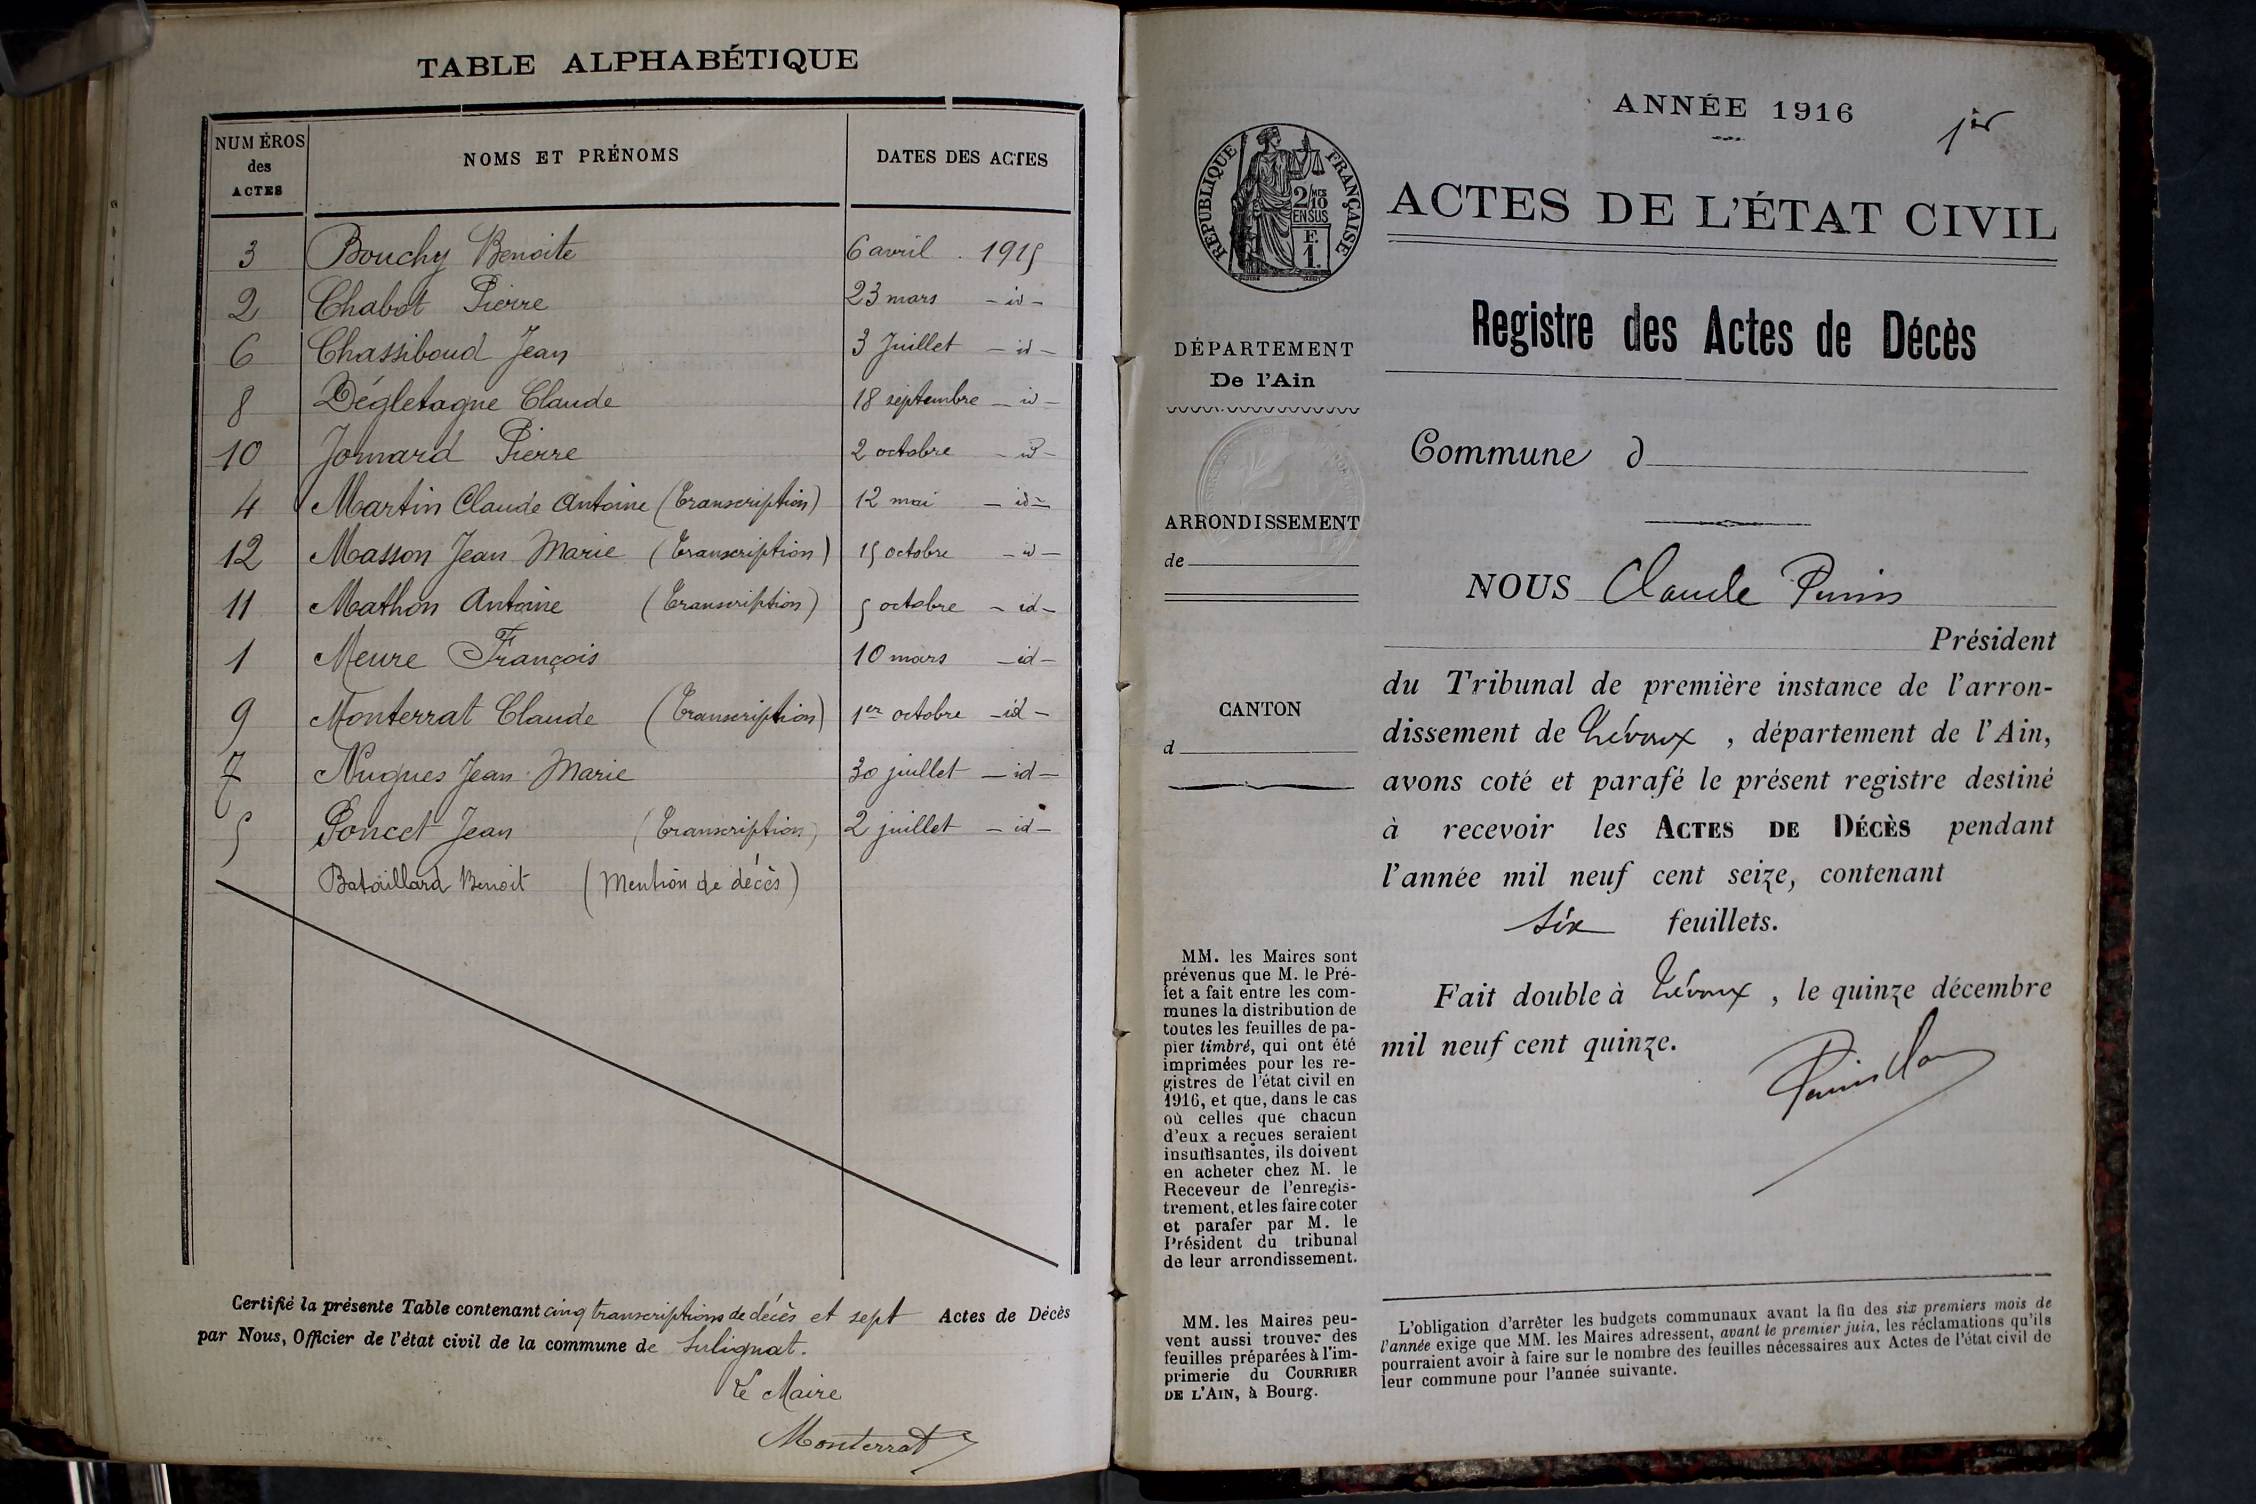 TABLE ALPHABÉTIQUE
NUMÉROS des ACTES NOMS ET PRÉNOMS DATES DES ACTES
3 Bouchy Benoite 6 avril . 1915
2 Chabot Pierre 23 mars - id -
6 Chassiboud Jean 3 Juillet - id -
8 Dégletagne Claude 18 septembre - id -
10 Jomard Pierre 2 octobre - id -
4 Martin Claude Antoine (Transcription) 12 mai - id -
12 Masson Jean Marie (Transcription) 15 octobre - id -
11 Mathon Antoine (Transcription) 5 octobre - id -
1 Meure François 10 mars - id -
9 Monterrat Claude (Transcription) 1er octobre - id -
7 Nugues Jean Marie 30 juillet - id -
5 Poncet Jean (Transcription) 2 juillet - id -
Bataillard Benoit (Mention de décès)
Certifié la présente Table contenant cinq transcriptions de décès et sept Actes de Décès
par Nous, Officier de l'état civil de la commune de Sulignat.
Le Maire
Monterrat
ANNÉE 1916
1er
RÉPUBLIQUE FRANÇAISE
2/10 MES
EN SUS
F.
1.
ACTES DE L'ÉTAT CIVIL
Registre des Actes de Décès
DÉPARTEMENT
De l'Ain
ARRONDISSEMENT
de
CANTON
d
MM. les Maires sont
prévenus que M. le Pré-
fet a fait entre les com-
munes la distribution de
toutes les feuilles de pa-
pier timbré, qui ont été
imprimées pour les re-
gistres de l'état civil en
1916, et que, dans le cas
où celles que chacun
d'eux a reçues seraient
insuffisantes, ils doivent
en acheter chez M. le
Receveur de l'enregis-
trement, et les faire coter
et parafer par M. le
Président du tribunal
de leur arrondissement.
MM. les Maires peu-
vent aussi trouver des
feuilles préparées à l'im-
primerie du COURRIER
DE L'AIN, à Bourg.
Commune d
NOUS Claude Punis
Président
du Tribunal de première instance de l'arron-
dissement de Trévoux , département de l'Ain,
avons coté et parafé le présent registre destiné
à recevoir les ACTES DE DÉCÈS pendant
l'année mil neuf cent seize, contenant
six feuillets.
Fait double à Trévoux , le quinze décembre
mil neuf cent quinze.
L'obligation d'arrêter les budgets communaux avant la fin des six premiers mois de
l'année exige que MM. les Maires adressent, avant le premier juin, les réclamations qu'ils
pourraient avoir à faire sur le nombre des feuilles nécessaires aux Actes de l'état civil de
leur commune pour l'année suivante.